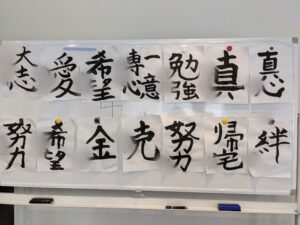 大志 愛 希望 一意専心 勉強 真 真心
努力 希望 金 克 努力 帰宅 絆